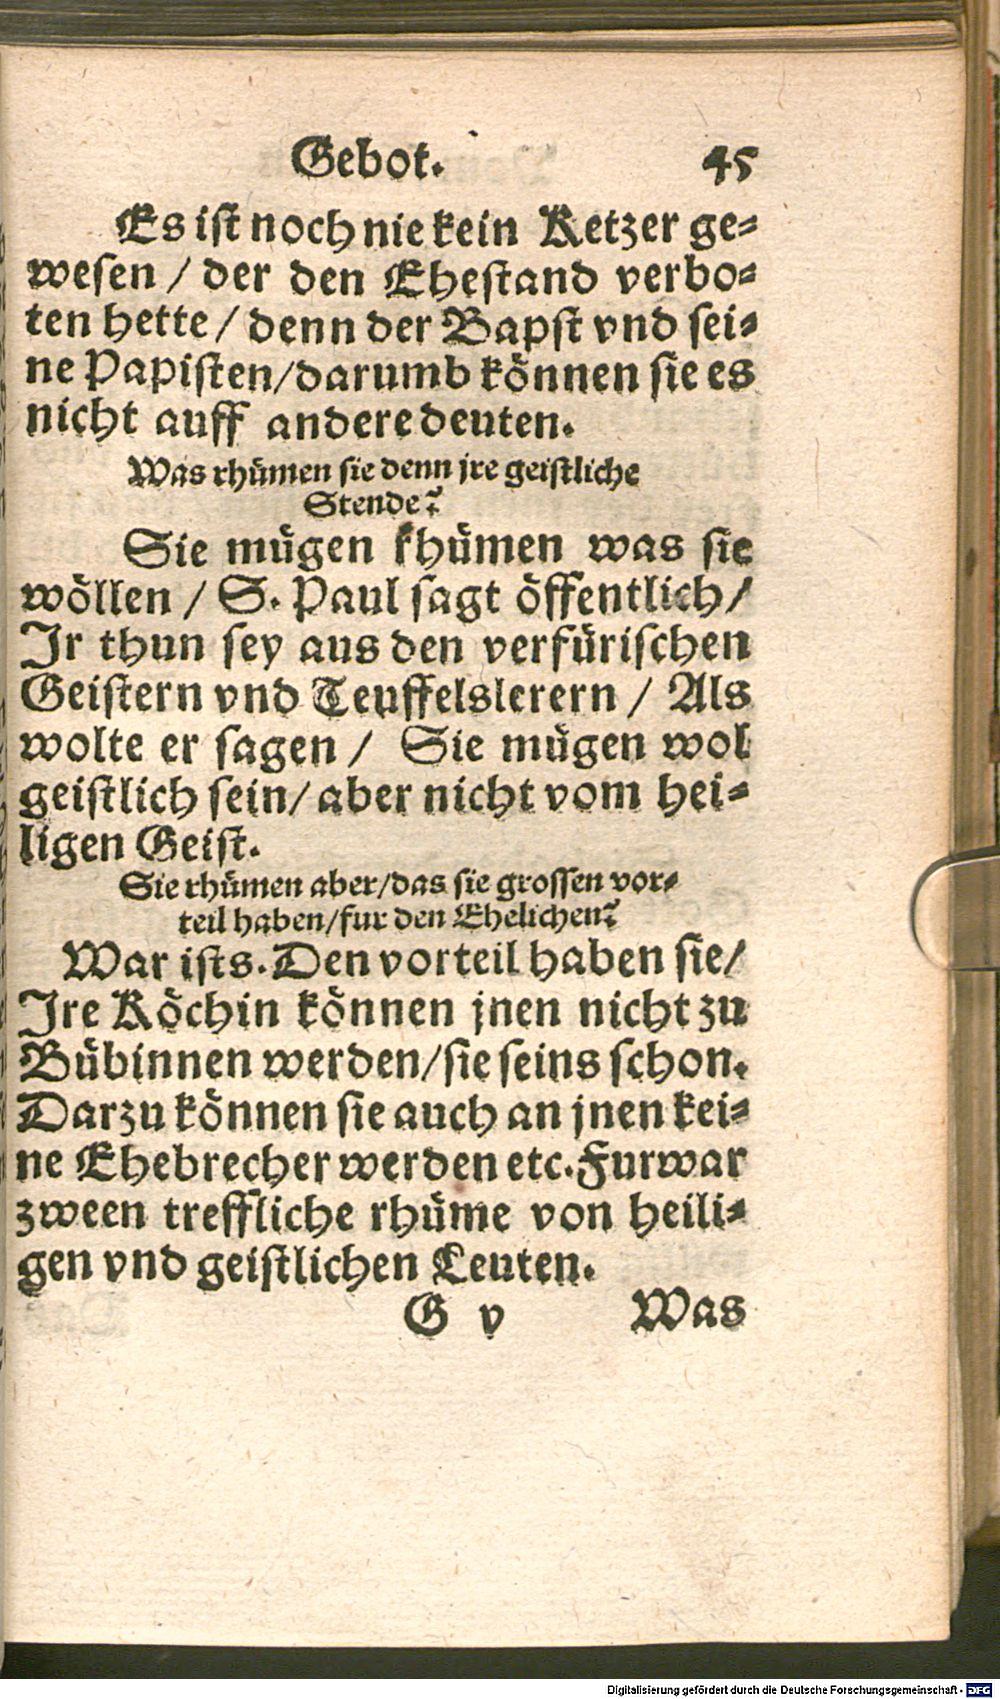 Gebot. 45
Es ist noch nie kein Ketzer ge-
wesen / der den Ehestand verbo-
ten hette / denn der Bapst vnd sei-
ne Papisten / darumb können sie es
nicht auff andere deuten.
Was rhümen sie denn jre geistliche
Stende?
Sie mügen rhümen was sie
wöllen / S. Paul sagt öffentlich /
Ir thun sey aus den verfürischen
Geistern vnd Teuffelslerern / Als
wolte er sagen / Sie mügen wol
geistlich sein / aber nicht vom hei-
ligen Geist.
Sie rhümen aber / das sie grossen vor-
teil haben / fur den Ehelichen?
War ists. Den vorteil haben sie /
Ire Köchin können jnen nicht zu
Bübinnen werden / sie seins schon.
Darzu können sie auch an jnen kei-
ne Ehebrecher werden etc. Furwar
zween treffliche rhüme von heili-
gen vnd geistlichen Leuten.
G v Was
Digitalisierung gefördert durch die Deutsche Forschungsgemeinschaft - DFG